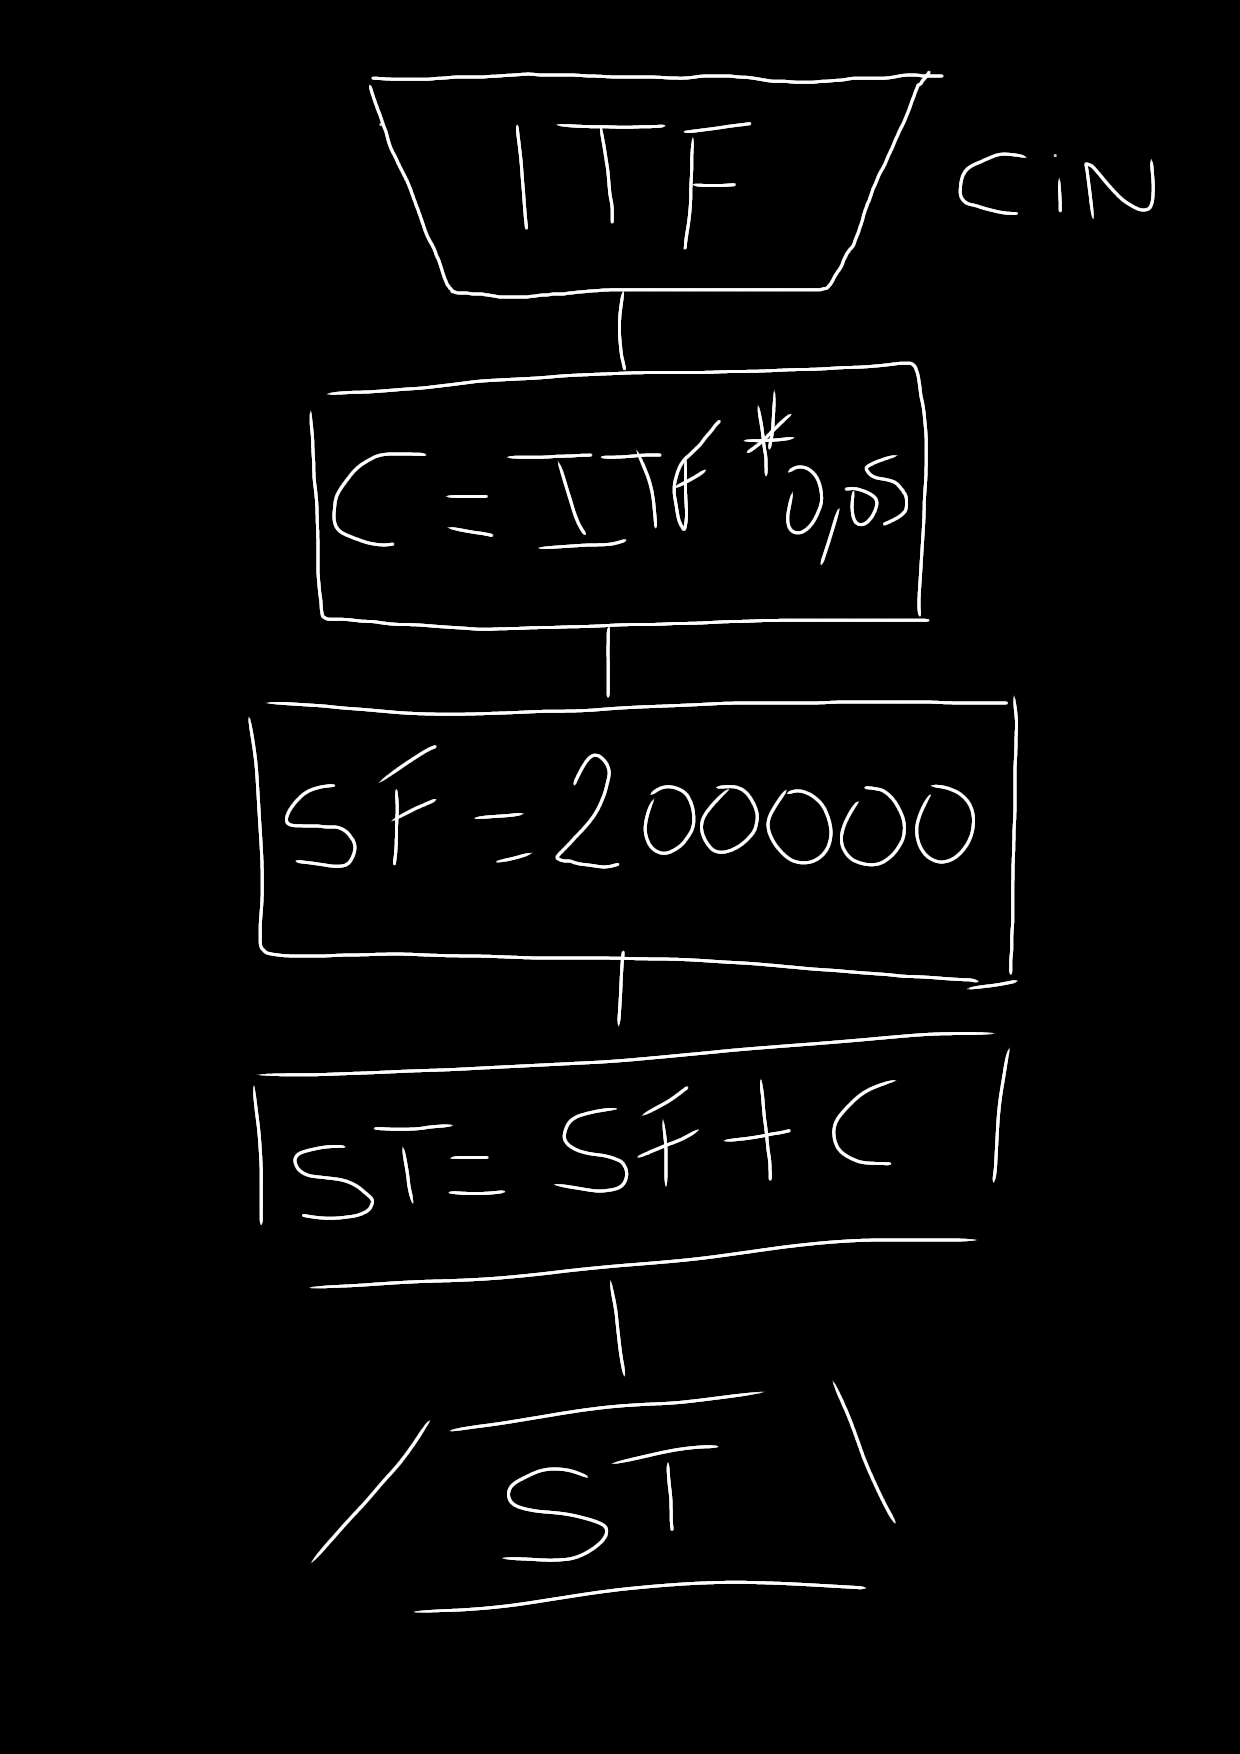 ITF
CiN
C = ITF * 0,05
SF = 200000
ST = SF + C
ST